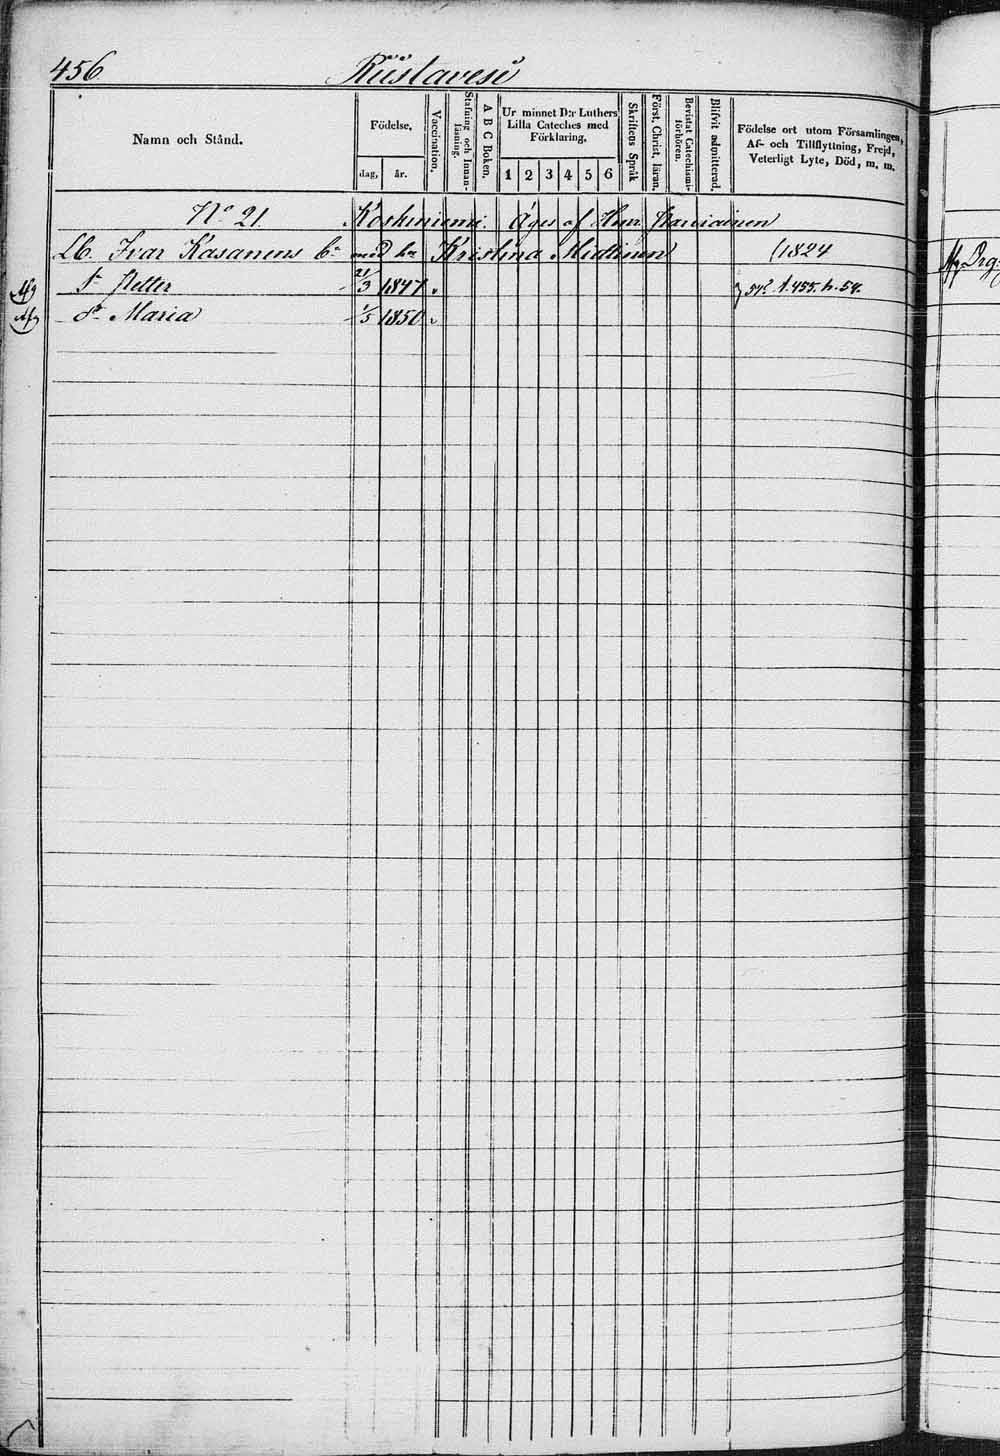 456. Riistavesi
Namn och Stånd.
Födelse,
dag,
år.
Vaccination.
Stafning och Innan-
läsning.
A B C Boken.
Ur minnet D:r Luthers
Lilla Cateches med
Förklaring.
1 2 3 4 5 6
Skriftens Språk
Först. Christ. läran.
Bevistat Catechismi-
förhören.
Blifvit admitterad.
Födelse ort utom Församlingen,
Af- och Tillflyttning, Frejd,
Veterligt Lyte, Död, m. m.
No 21. Koskiniemi. Äges af Henr.
Lb. Ivar Kasanens med Kristina Miettinen (1824
S. Petter 21/3 1847 s. 455. h. 54.
dr Maria 1/5 1850